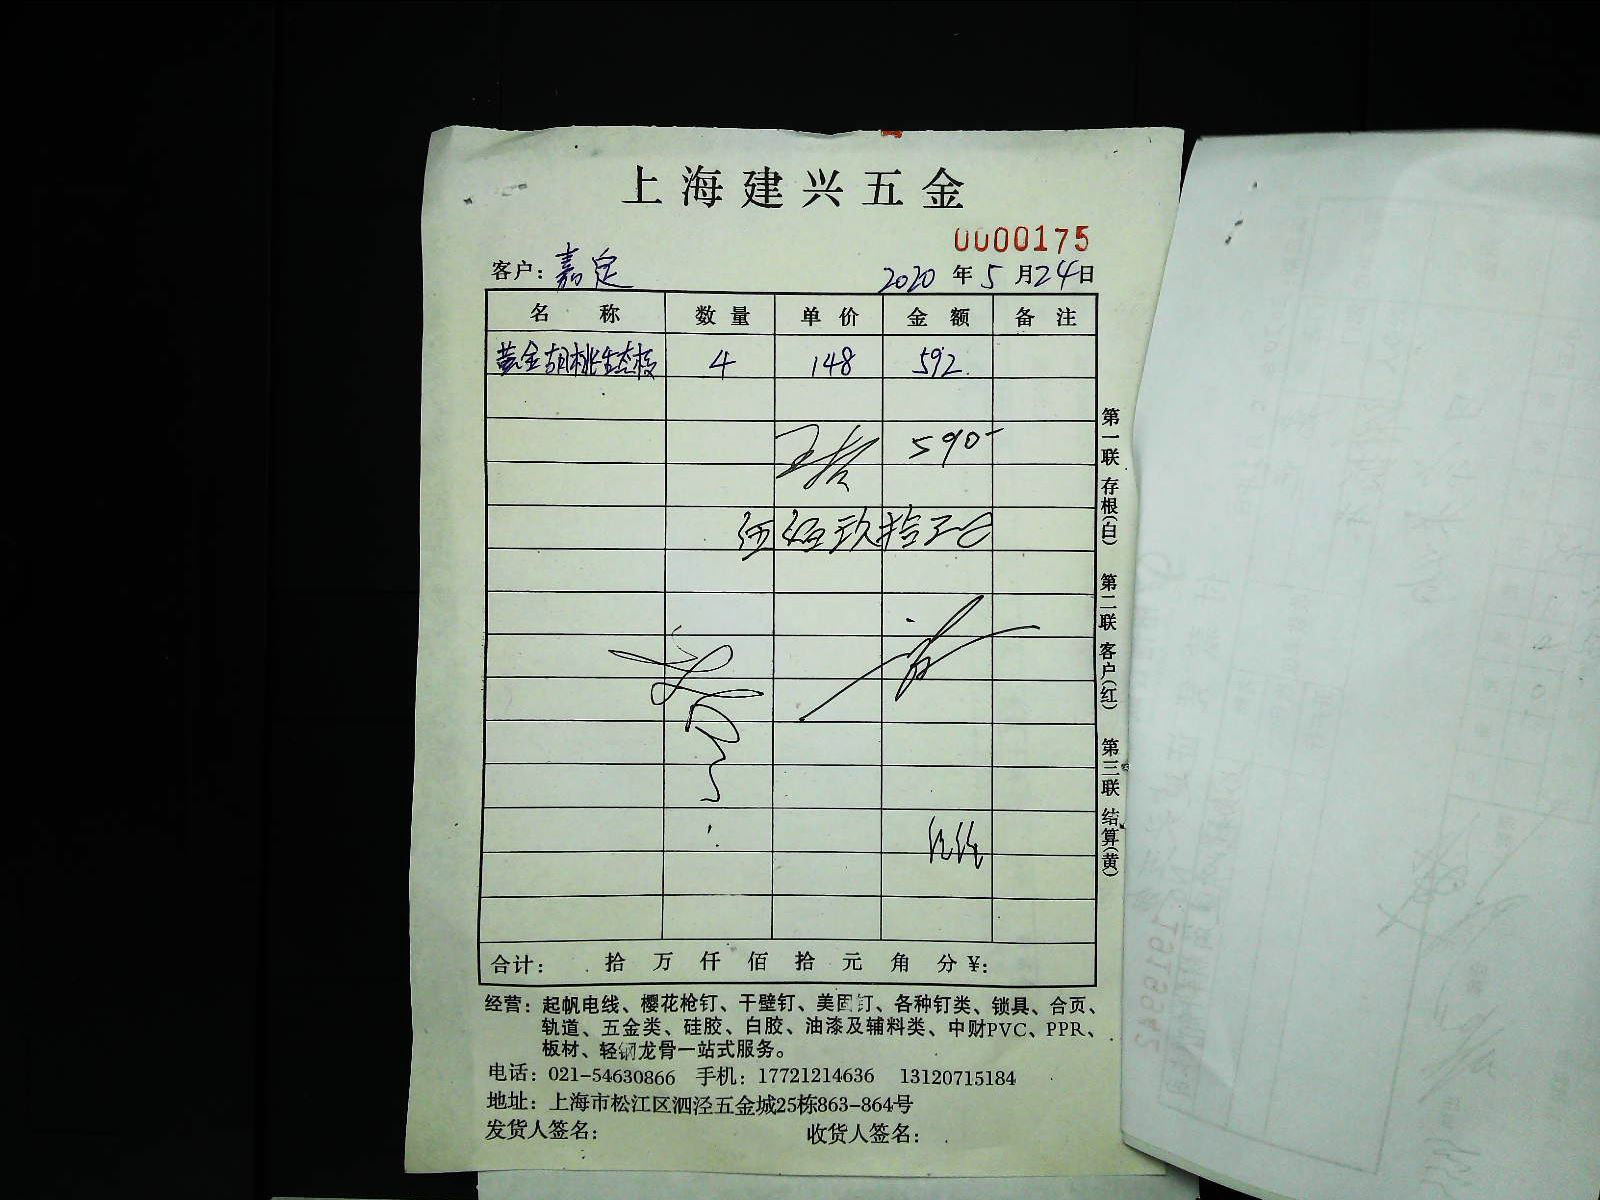 上海建兴五金
0000175
客户：嘉定 2020年5月24日
名称 数量 单价 金额 备注
黄金胡桃生态板 4 148 592
590-
伍佰玖拾元
第一联 存根(白) 第二联 客户(红) 第三联 结算(黄)
合计： 拾 万 仟 佰 拾 元 角 分 ¥:
经营：起帆电线、樱花枪钉、干壁钉、美固钉、各种钉类、锁具、合页、
轨道、五金类、硅胶、白胶、油漆及辅料类、中财PVC、PPR、
板材、轻钢龙骨一站式服务。
电话：021-54630866 手机：17721214636 13120715184
地址：上海市松江区泗泾五金城25栋863-864号
发货人签名： 收货人签名：